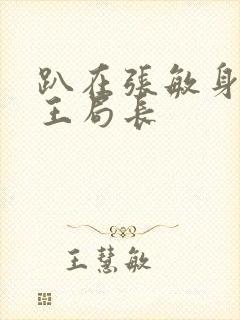 趴在張敏身
王局長
王慧敏